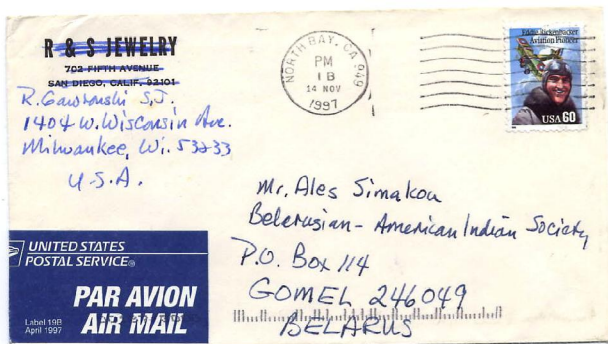 R & S JEWELRY
702 FIFTH AVENUE
SAN DIEGO, CALIF. 92101
R. Gawronski S.J.
1404 W. Wisconsin Ave.
Milwaukee, Wi. 53233
U.S.A.
NORTH BAY, CA 949
PM
1B
14 NOV
1997
Eddie Rickenbacker
Aviation Pioneer
USA 60
Mr. Ales Simakou
Belerusian-American Indian Society
P.O. Box 114
GOMEL 246049
BELARUS
UNITED STATES
POSTAL SERVICE®
PAR AVION
AIR MAIL
Label 19B
April 1997